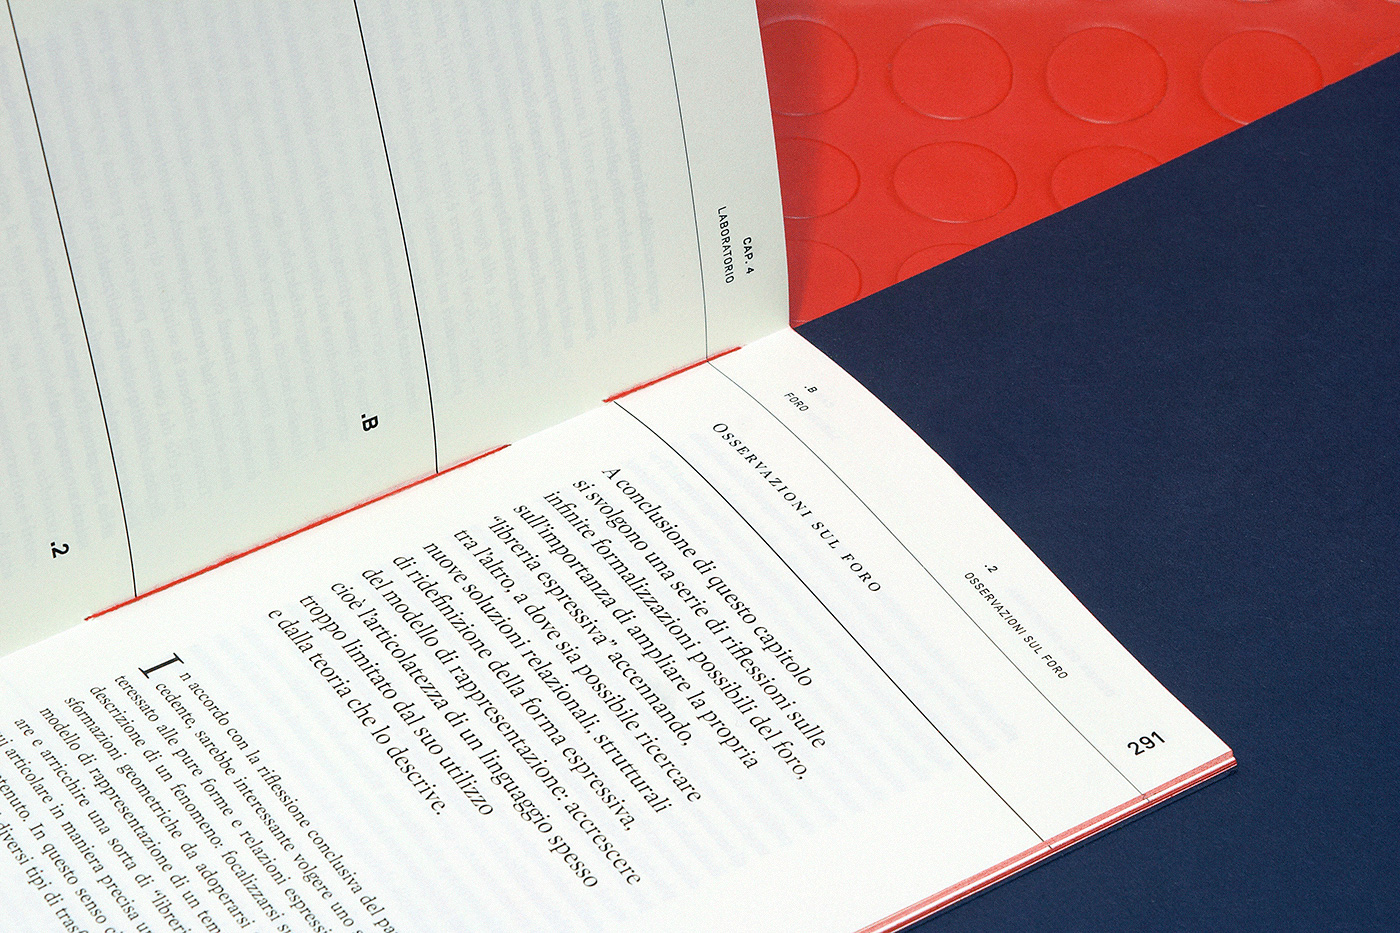 CAP. 4
LABORATORIO
.B
.2
.B
FORO
.2
OSSERVAZIONI SUL FORO
291
OSSERVAZIONI SUL FORO
A conclusione di questo capitolo
si svolgono una serie di riflessioni sulle
infinite formalizzazioni possibili del foro,
sull'importanza di ampliare la propria
“libreria espressiva” accennando,
tra l'altro, a dove sia possibile ricercare
nuove soluzioni relazionali, strutturali
di ridefinizione della forma espressiva,
del modello di rappresentazione: accrescere
cioé l'articolatezza di un linguaggio spesso
troppo limitato dal suo utilizzo
e dalla teoria che lo descrive.
In accordo con la riflessione conclusiva del
cedente, sarebbe interessante volgere uno
teressato alle pure forme e relazioni
descrizione di un fenomeno: focalizzarsi
sformazioni geometriche da adoperarsi
modello di rappresentazione di un
are e arricchire una sorta di
articolare in maniera precisa
In questo senso
diversi tipi di